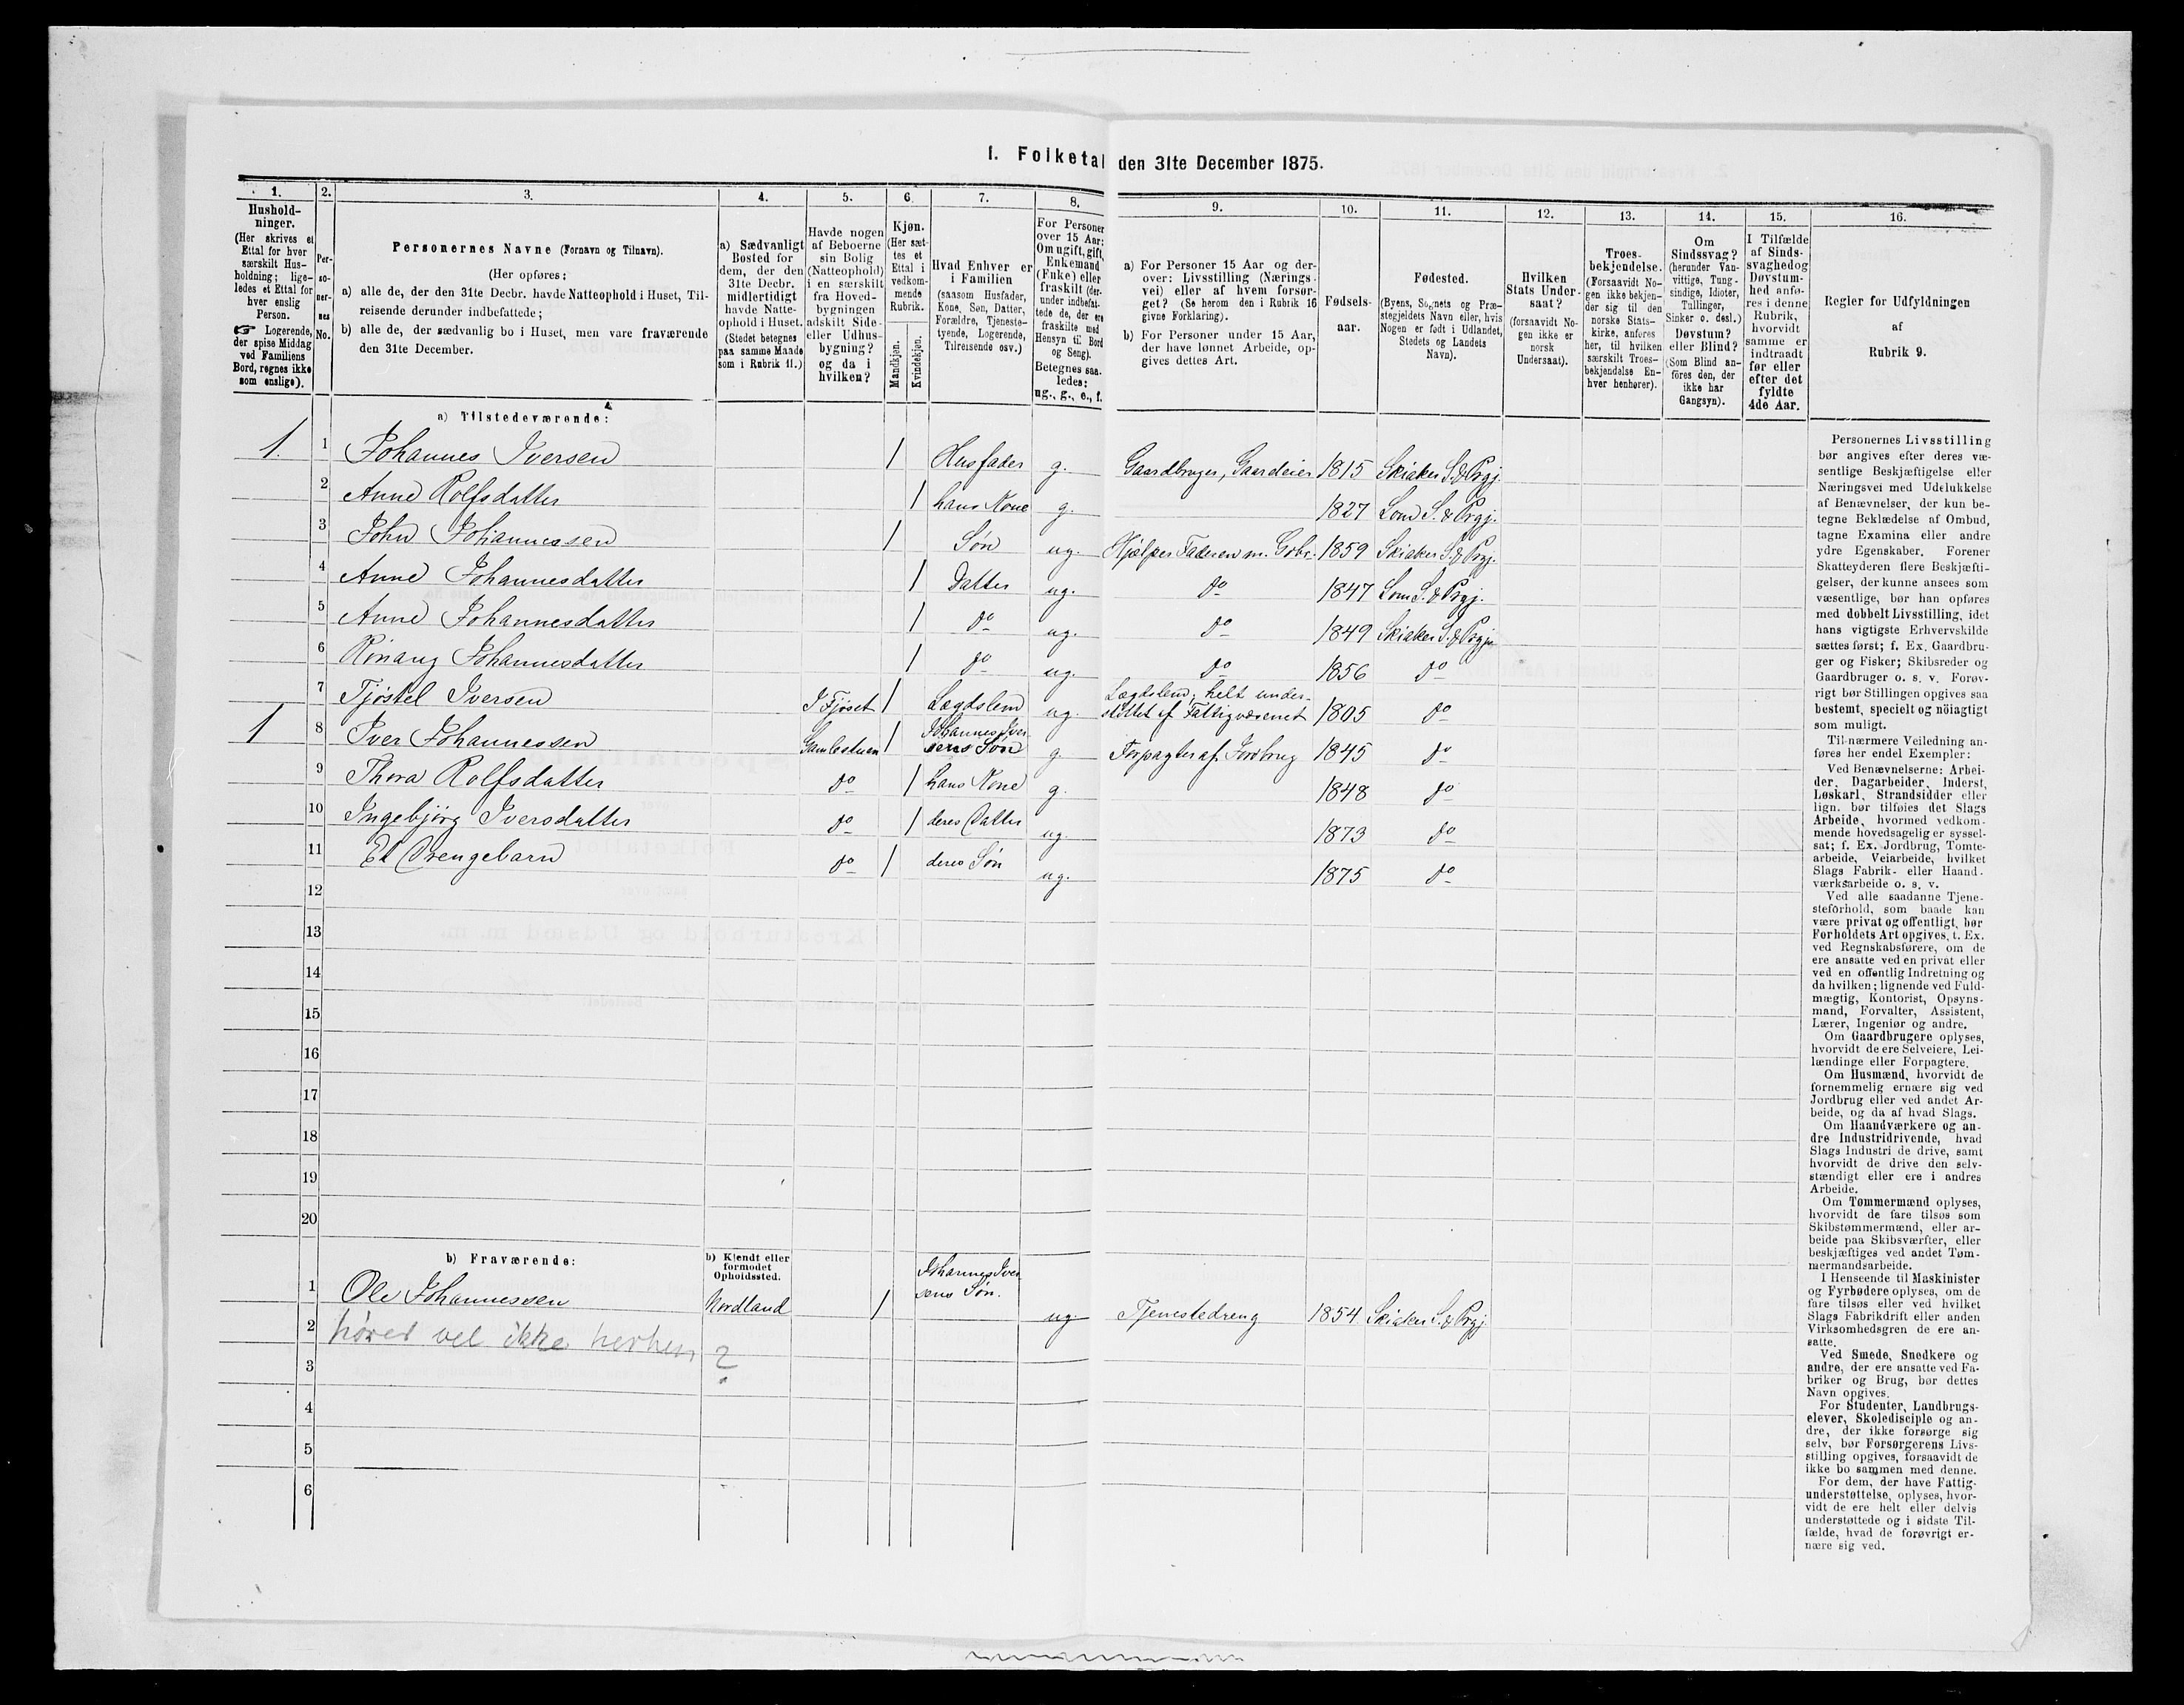 1. Folketal den 31te December 1875.
1. 2. 3. 4. 5. 6. 7. 8. 9. 10. 11. 12. 13. 14. 15. 16.
Hushold-
ninger.
(Her skrives et
Ettal for hver
særskilt Hus-
holdning; lige-
ledes et Ettal for
hver enslig
Person.
☞ Logerende,
der spise Middag
ved Familiens
Bord, regnes ikke
som enslige).
Per-
so-
ner-
nes
No.
Personernes Navne (Fornavn og Tilnavn).
(Her opføres:
a) alle de, der den 31te Decbr. havde Natteophold i Huset, Til-
reisende derunder indbefattede;
b) alle de, der sædvanlig bo i Huset, men vare fraværende
den 31te December.
a) Sædvanligt
Bosted for
dem, der den
31te Decbr.
midlertidigt
havde Natte-
ophold i Huset.
(Stedet betegnes
paa samme Maade
som i Rubrik 11.)
Havde nogen
af Beboerne
sin Bolig
(Natteophold)
i en særskilt
fra Hoved-
bygningen
adskilt Side-
eller Udhus-
bygning?
og da i
hvilken?
Kjøn.
(Her sæt-
tes et
Ettal i
vedkom-
mende
Rubrik.
Mandkjøn.
Kvindekjøn.
Hvad Enhver er
i Familien
(saasom Husfader,
Kone, Søn, Datter,
Forældre, Tjeneste-
tyende, Logerende,
Tilreisende osv.)
For Personer
over 15 Aar:
Om ugift, gift,
Enkemand
(Enke) eller
fraskilt (der-
under indbefat-
tede de, der ere
fraskilte med
Hensyn til Bord
og Seng).
Betegnes saa-
ledes:
ug., g., e., f.
a) For Personer 15 Aar og der-
over: Livsstilling (Nærings-
vei) eller af hvem forsør-
get? (Se herom den i Rubrik 16
givne Forklaring).
b) For Personer under 15 Aar,
der have lønnet Arbeide, op-
gives dettes Art.
Fødsels-
aar.
Fødested.
(Byens, Sognets og Præ-
stegjeldets Navn eller, hvis
Nogen er født i Udlandet,
Stedets og Landets
Navn).
Hvilken
Stats Under-
saat?
(forsaavidt No-
gen ikke er
norsk
Undersaat).
Troes-
bekjendelse.
(Forsaavidt No-
gen ikke bekjen-
der sig til den
norske Stats-
kirke, anføres
her, til hvilken
særskilt Troes-
bekjendelse En-
hver henhører).
Om
Sindssvag?
(herunder Van-
vittige, Tung-
sindige, Idioter,
Tullinger,
Sinker o. desl.)
Døvstum?
eller Blind?
(Som Blind an-
føres den, der
ikke har
Gangsyn).
I Tilfælde
af Sinds-
svaghed og
Døvstum-
hed anfø-
res i denne
Rubrik,
hvorvidt
samme er
indtraadt
før eller
efter det
fyldte
4de Aar.
Regler for Udfyldningen
af
Rubrik 9.
a) Tilstedeværende:
1 1 Johannes Iversen 1 Husfader g. Gaardbruger, Gaardeier 1815 Skiaker S. & Prgj.
2 Anne Rolfsdatter 1 hans Kone g. 1827 Lom S. & Prgj.
3 John Johannessen 1 Søn ug. Hjælper Faderen m. Gdbr. 1859 Skiaker S. & Prgj.
4 Anne Johannesdatter 1 Datter ug. do 1847 Lom S. & Prgj.
5 Anne Johannesdatter 1 do ug. do 1849 Skiaker S. & Prgj.
6 Rønaug Johannesdatter 1 do ug. do 1856 do
7 Tjøstel Iversen I Fjøset 1 Lægdslem ug. Lægdslem, helt under-
støttet af Fattigvæsenet 1805 do
1 8 Iver Johannessen Gamlestuen 1 Johannes Iver-
sens Søn g. Forpagter af Jordbrug 1845 do
9 Thora Rolfsdatter do 1 hans Kone g. 1848 do
10 Ingebjørg Iversdatter do 1 deres Datter ug. 1873 do
11 Et Drengebarn do 1 deres Søn ug. 1875 do
12
13
14
15
16
17
18
19
20
b) Fraværende:
b) Kjendt eller
formodet
Opholdssted.
1 Ole Johannessen Nordland 1 Johannes Iver-
sens Søn. ug Tjenestedreng 1854 Skiaker S. & Prgj.
2 hører vel ikke herhen ?
3
4
5
6
Personernes Livsstilling
bør angives efter deres væ-
sentlige Beskjæftigelse eller
Næringsvei med Udelukkelse
af Benævnelser, der kun be-
tegne Beklædelse af Ombud,
tagne Examina eller andre
ydre Egenskaber. Forener
Skatteyderen flere Beskjæfti-
gelser, der kunne ansees som
væsentlige, bør han opføres
med dobbelt Livsstilling, idet
hans vigtigste Erhvervskilde
sættes først; f. Ex. Gaardbru-
ger og Fisker; Skibsreder og
Gaardbruger o. s. v. Forøv-
rigt bør Stillingen opgives saa
bestemt, specielt og nöiagtigt
som muligt.
Til nærmere Veiledning an-
føres her endel Exempler:
Ved Benævnelserne: Arbei-
der, Dagarbeider, Inderst,
Løskarl, Strandsidder eller
lign. bør tilføies det Slags
Arbeide, hvormed vedkom-
mende hovedsagelig er syssel-
sat; f. Ex. Jordbrug, Tomte-
arbeide, Veiarbeide, hvilket
Slags Fabrik- eller Haand-
værksarbeide o. s. v.
Ved alle saadanne Tjene-
steforhold, som baade kan
være privat og offentligt, bør
Forholdets Art opgives, t. Ex.
ved Regnskabsførere, om de
ere ansatte ved en privat eller
ved en offentlig Indretning og
da hvilken; lignende ved Fuld-
mægtig, Kontorist, Opsyns-
mand, Forvalter, Assistent,
Lærer, Ingeniør og andre.
Om Gaardbrugere oplyses,
hvorvidt de ere Selveiere, Lei-
lændinge eller Forpagtere.
Om Husmænd, hvorvidt de
fornemmelig ernære sig ved
Jordbrug eller ved andet Ar-
beide, og da af hvad Slags.
Om Haandværkere og an-
dre Industridrivende, hvad
Slags Industri de drive, samt
hvorvidt de drive den selv-
stændigt eller ere i andres
Arbeide.
Om Tømmermænd oplyses,
hvorvidt de fare tilsøs som
Skibstømmermænd, eller ar-
beide paa Skibsværfter, eller
beskjæftiges ved andet Tøm-
mermandsarbeide.
I Henseende til Maskinister
og Fyrbødere oplyses, om de
fare tilsøs eller ved hvilket
Slags Fabrikdrift eller anden
Virksomhedsgren de ere an-
satte.
Ved Smede, Snedkere og
andre, der ere ansatte ved Fa-
briker og Brug, bør dettes
Navn opgives.
For Studenter, Landbrugs-
elever, Skoledisciple og an-
dre, der ikke forsørge sig
selv, bør Forsørgerens Livs-
stilling opgives, forsaavidt de
ikke bo sammen med denne.
For dem, der have Fattig-
understøttelse, oplyses, hvor-
vidt de ere helt eller delvis
understøttede og i sidste Til-
fælde, hvad de forøvrigt er-
nære sig ved.